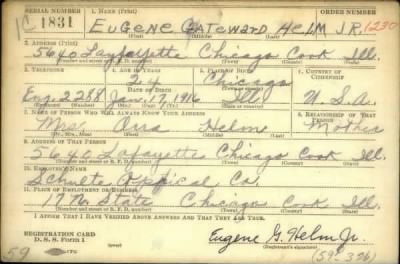 SERIAL NUMBER 1. NAME (Print) ORDER NUMBER
C 1831 EUGENE GATEWARD HELM JR. 1230
(First) (Middle) (Last)
2. ADDRESS (Print)
5640 Layfayette Chicago Cook Ill.
(Number and street or R. F. D. number) (Town) (County) (State)
3. TELEPHONE 4. AGE IN YEARS 5. PLACE OF BIRTH 6. COUNTRY OF CITIZENSHIP
24 Chicago
DATE OF BIRTH
Eng. 2288 Jan. 17 1916 Ill. U.S.A.
(Exchange) (Number) (Mo.) (Day) (Yr.) (State or country)
7. NAME OF PERSON WHO WILL ALWAYS KNOW YOUR ADDRESS 8. RELATIONSHIP OF THAT PERSON
Mrs. Ora Helm Mother
(Mr., Mrs., Miss) (First) (Middle) (Last)
9. ADDRESS OF THAT PERSON
5640 Lafayette Chicago Cook Ill.
(Number and street or R. F. D. number) (Town) (County) (State)
10. EMPLOYER'S NAME
Optical Co.
11. PLACE OF EMPLOYMENT OR BUSINESS
17 N. State Chicago Cook Ill.
(Number and street or R. F. D. number) (Town) (County) (State)
I AFFIRM THAT I HAVE VERIFIED ABOVE ANSWERS AND THAT THEY ARE TRUE.
REGISTRATION CARD
D. S. S. Form 1 Eugene G. Helm Jr.
(Registrant's signature)
59 (59-326)